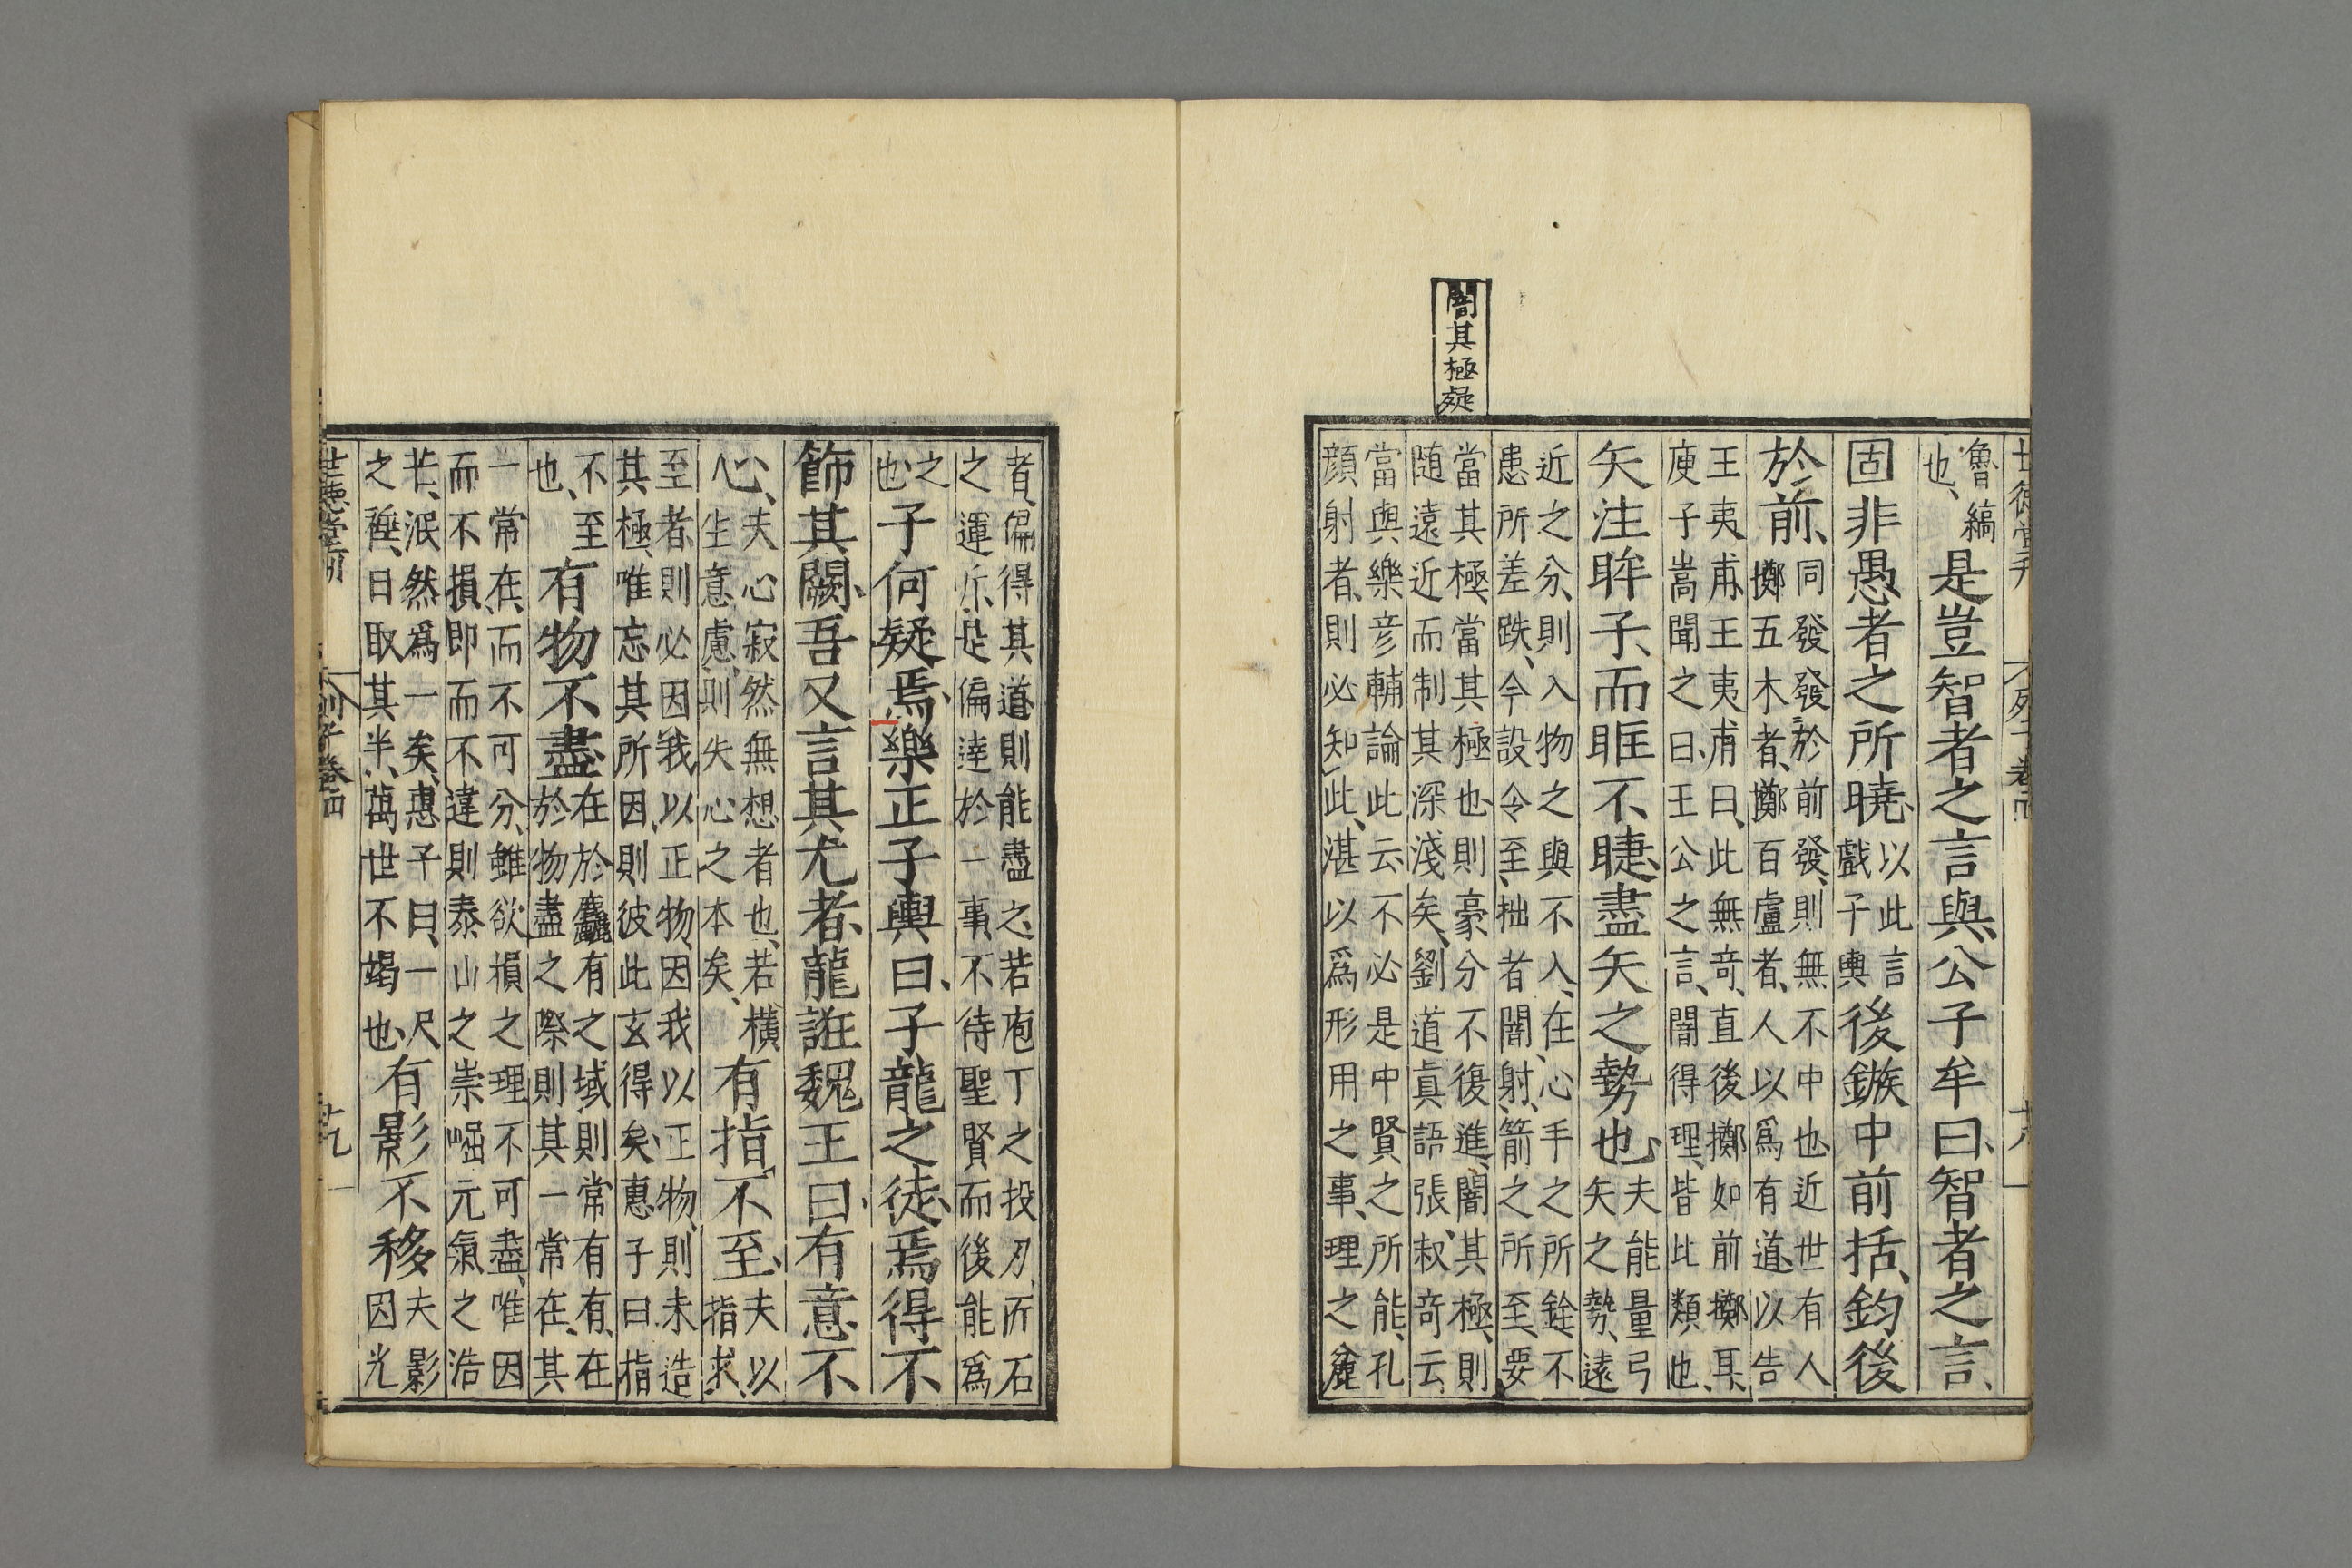 闇其極疑
世德堂刊 列子卷四 十八
魯縞也、是豈智者之言與、公子牟曰、智者之言、
固非愚者之所曉、以此言戲子輿後鏃中前括、鈞後
於前、同發發於前發、則無不中也近世有人
擲五木者、擲百盧者、人以爲有道、以告
王夷甫、王夷甫曰、此無奇、直後擲如前擲耳、
庾子嵩聞之曰、王公之言、闇得理、皆比類也、
矢注眸子、而眶不睫、盡矢之勢也、夫能量弓矢之勢、遠
近之分、則入物之與不入、在心手之所銓、不
患所差跌、今設令至拙者闇射、箭之所至、要
當其極、當其極也、則豪分不復進、闇其極、則
随遠近而制其深淺矣、劉道真語張叔奇云、
當與樂彦輔論此云不必是中賢之所能、孔
顔射者、則必知此、湛以爲形用之事、理之麄
者、偏得其道、則能盡之、若庖丁之投刃、匠石
之運斤、是偏達於一事、不待聖賢而後能爲
之也、子何疑焉、樂正子輿曰、子龍之徒、焉得不
飾其闕、吾又言其尤者、龍誑魏王曰、有意不
心、夫心寂然無想者也、若横生意慮、則失心之本矣、有指不至、夫以指求、
至者、則必因我以正物、因我以正物、則未造
其極、唯忘其所因、則彼此玄得矣、惠子曰、指
不至也、有物不盡在於麤有之域、則常有有、在於物盡之際、則其一常在、其
一常在、而不可分、雖欲損之、理不可盡、唯因
而不損、即而不違、則泰山之崇崛、元氣之浩
芒、泯然爲一矣、惠子曰、一尺之箠、日取其半、萬世不竭也、有影不移夫影因光
世德堂刊 列子卷四 十九